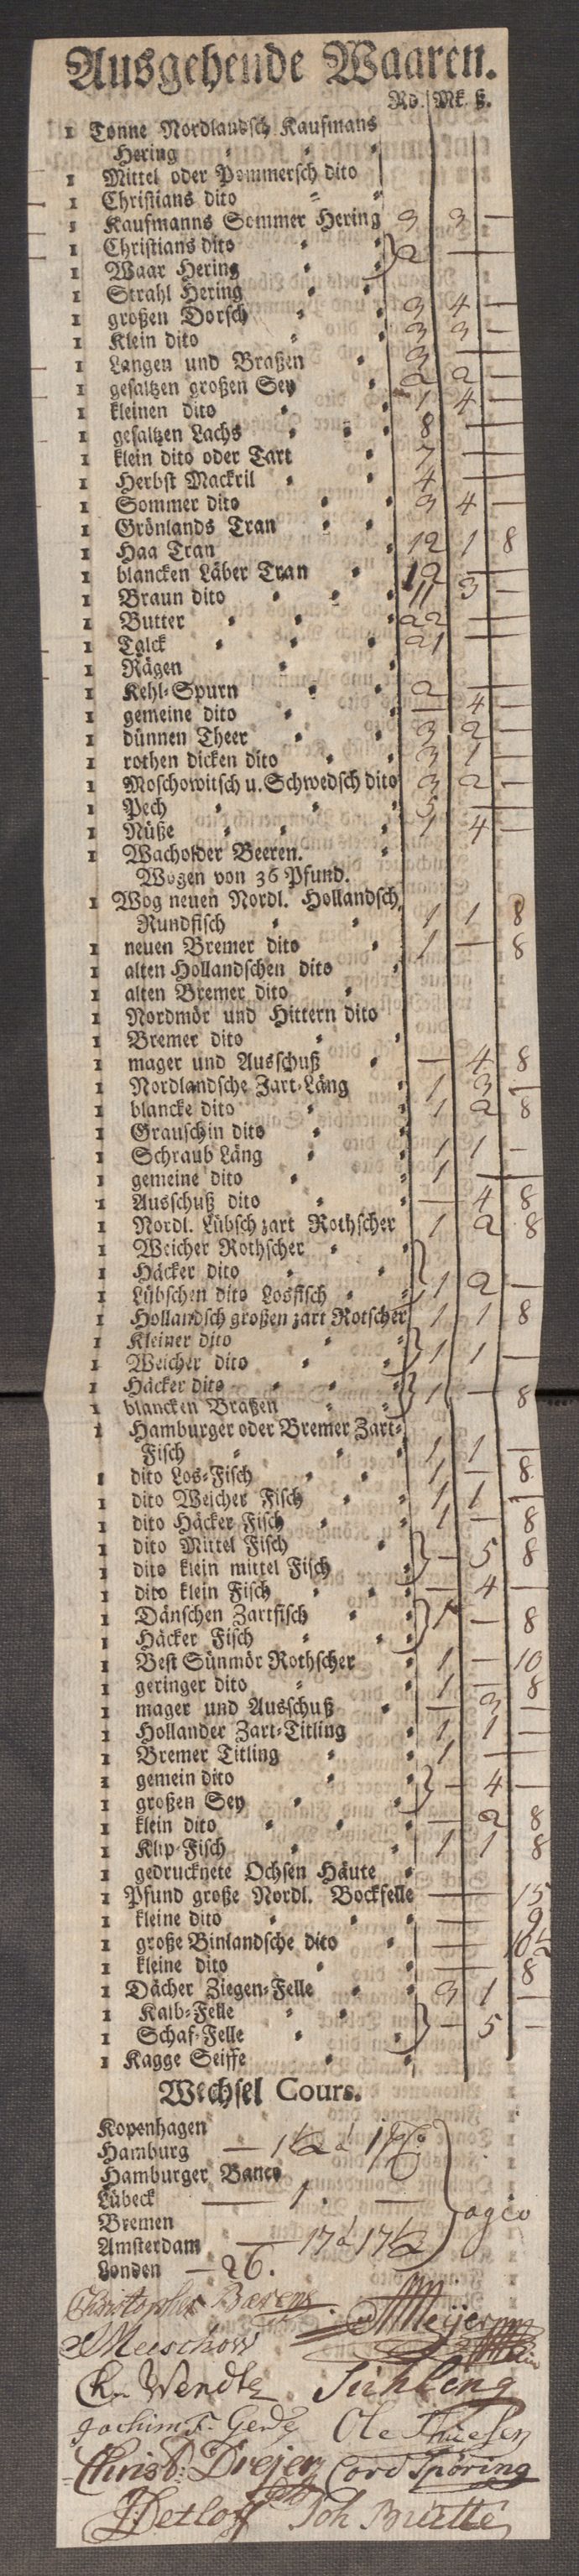 Ausgehende Waaren.
Rd. Mk. ß.
1 Tonne Nordlandsch Kaufmans
Hering
1 Mittel oder Pommersch dito
1 Christians dito
1 Kaufmanns Sommer Hering 3 3 —
1 Christians dito } 2 —
1 Waar Hering
1 Strahl Hering
1 großen Dorsch 3 4 —
1 Klein dito 3 3 —
1 Langen und Braßen 3 —
1 gesaltzen großen Sey 2 2 —
1 kleinen dito 1 4 —
1 gesaltzen Lachs 8 —
1 klein dito oder Tart 7 —
1 Herbst Mackril 4 —
1 Sommer dito 3 4 —
1 Grönlands Tran
1 Haa Tran 12 1 8
1 blancken Läber Tran 12 —
1 Braun dito 11 3 —
1 Butter 22 —
1 Talck 21 —
1 Rägen
1 Kehl-Spurn 2 —
1 gemeine dito — 4 —
1 dünnen Theer 3 2 —
1 rothen dicken dito 3 1 —
1 Moschowitsch u. Schwedsch dito 3 2 —
1 Pech 5 —
1 Nüße 1 4 —
1 Wacholder Beeren.
Wogen von 36 Pfund.
1 Wog neuen Nordl. Hollandsch
Rundfisch 1 1 8
1 neuen Bremer dito 1 — 8
1 alten Hollandschen dito
1 alten Bremer dito
1 Nordmör und Hittern dito
1 Bremer dito
1 mager und Ausschuß — 4 8
1 Nordlandsche Zart-Läng 1 3 —
1 blancke dito 1 2 8
1 Grauschin dito
1 Schraub Läng 1 1 —
1 gemeine dito 1 —
1 Ausschuß dito — 4 8
1 Nordl. Lübsch zart Rothscher 1 2 8
1 Weicher Rothscher }
1 Häcker dito
1 Lübschen dito Losfisch 1 2 —
1 Hollandsch großen zart Rotscher 1 1 8
1 Kleiner dito } 1 1 —
1 Weicher dito
1 Häcker dito } 1 — 8
1 blancken Braßen
1 Hamburger oder Bremer Zart-
Fisch 1 1 —
1 dito Los-Fisch 1 — 8
1 dito Weicher Fisch 1 1 —
1 dito Häcker Fisch 1 — 8
1 dito Mittel Fisch } — 5 8
1 dito klein mittel Fisch
1 dito klein Fisch — 4 —
1 Dänschen Zartfisch } 1 — 8
1 Häcker Fisch
1 Best Sünmör Rothscher 1 — 10
1 geringer dito 1 — 8
1 mager und Ausschuß — 3 —
1 Hollander Zart-Titling 1 1 —
1 Bremer Titling 1 —
1 gemein dito } — 4 —
1 großen Sey
1 klein dito — 2 8
1 Klip-Fisch 1 1 8
1 gedrucknete Ochsen Häute
1 Pfund große Nordl. Bockfelle — 15
1 kleine dito — 9
1 große Binlandsche dito — 10½
1 kleine dito — 8
1 Dächer Ziegen-Felle 3 1 —
1 Kalb-Felle } — 5 —
1 Schaf-Felle
1 Kagge Seiffe
Wechsel Cours.
Kopenhagen
Hamburg — 1½ a
Hamburger Banco
Lübeck — 1. — } agio
Bremen
Amsterdam — 17 a 17½
Londen — 26.
Christopher Barens Meijer
Meeschow
Chr. Wendte Suhling
Jochim F. Gerde Ole Thiesen
Christ: Drejer Cord Spöring
Detloff Joh Burtte